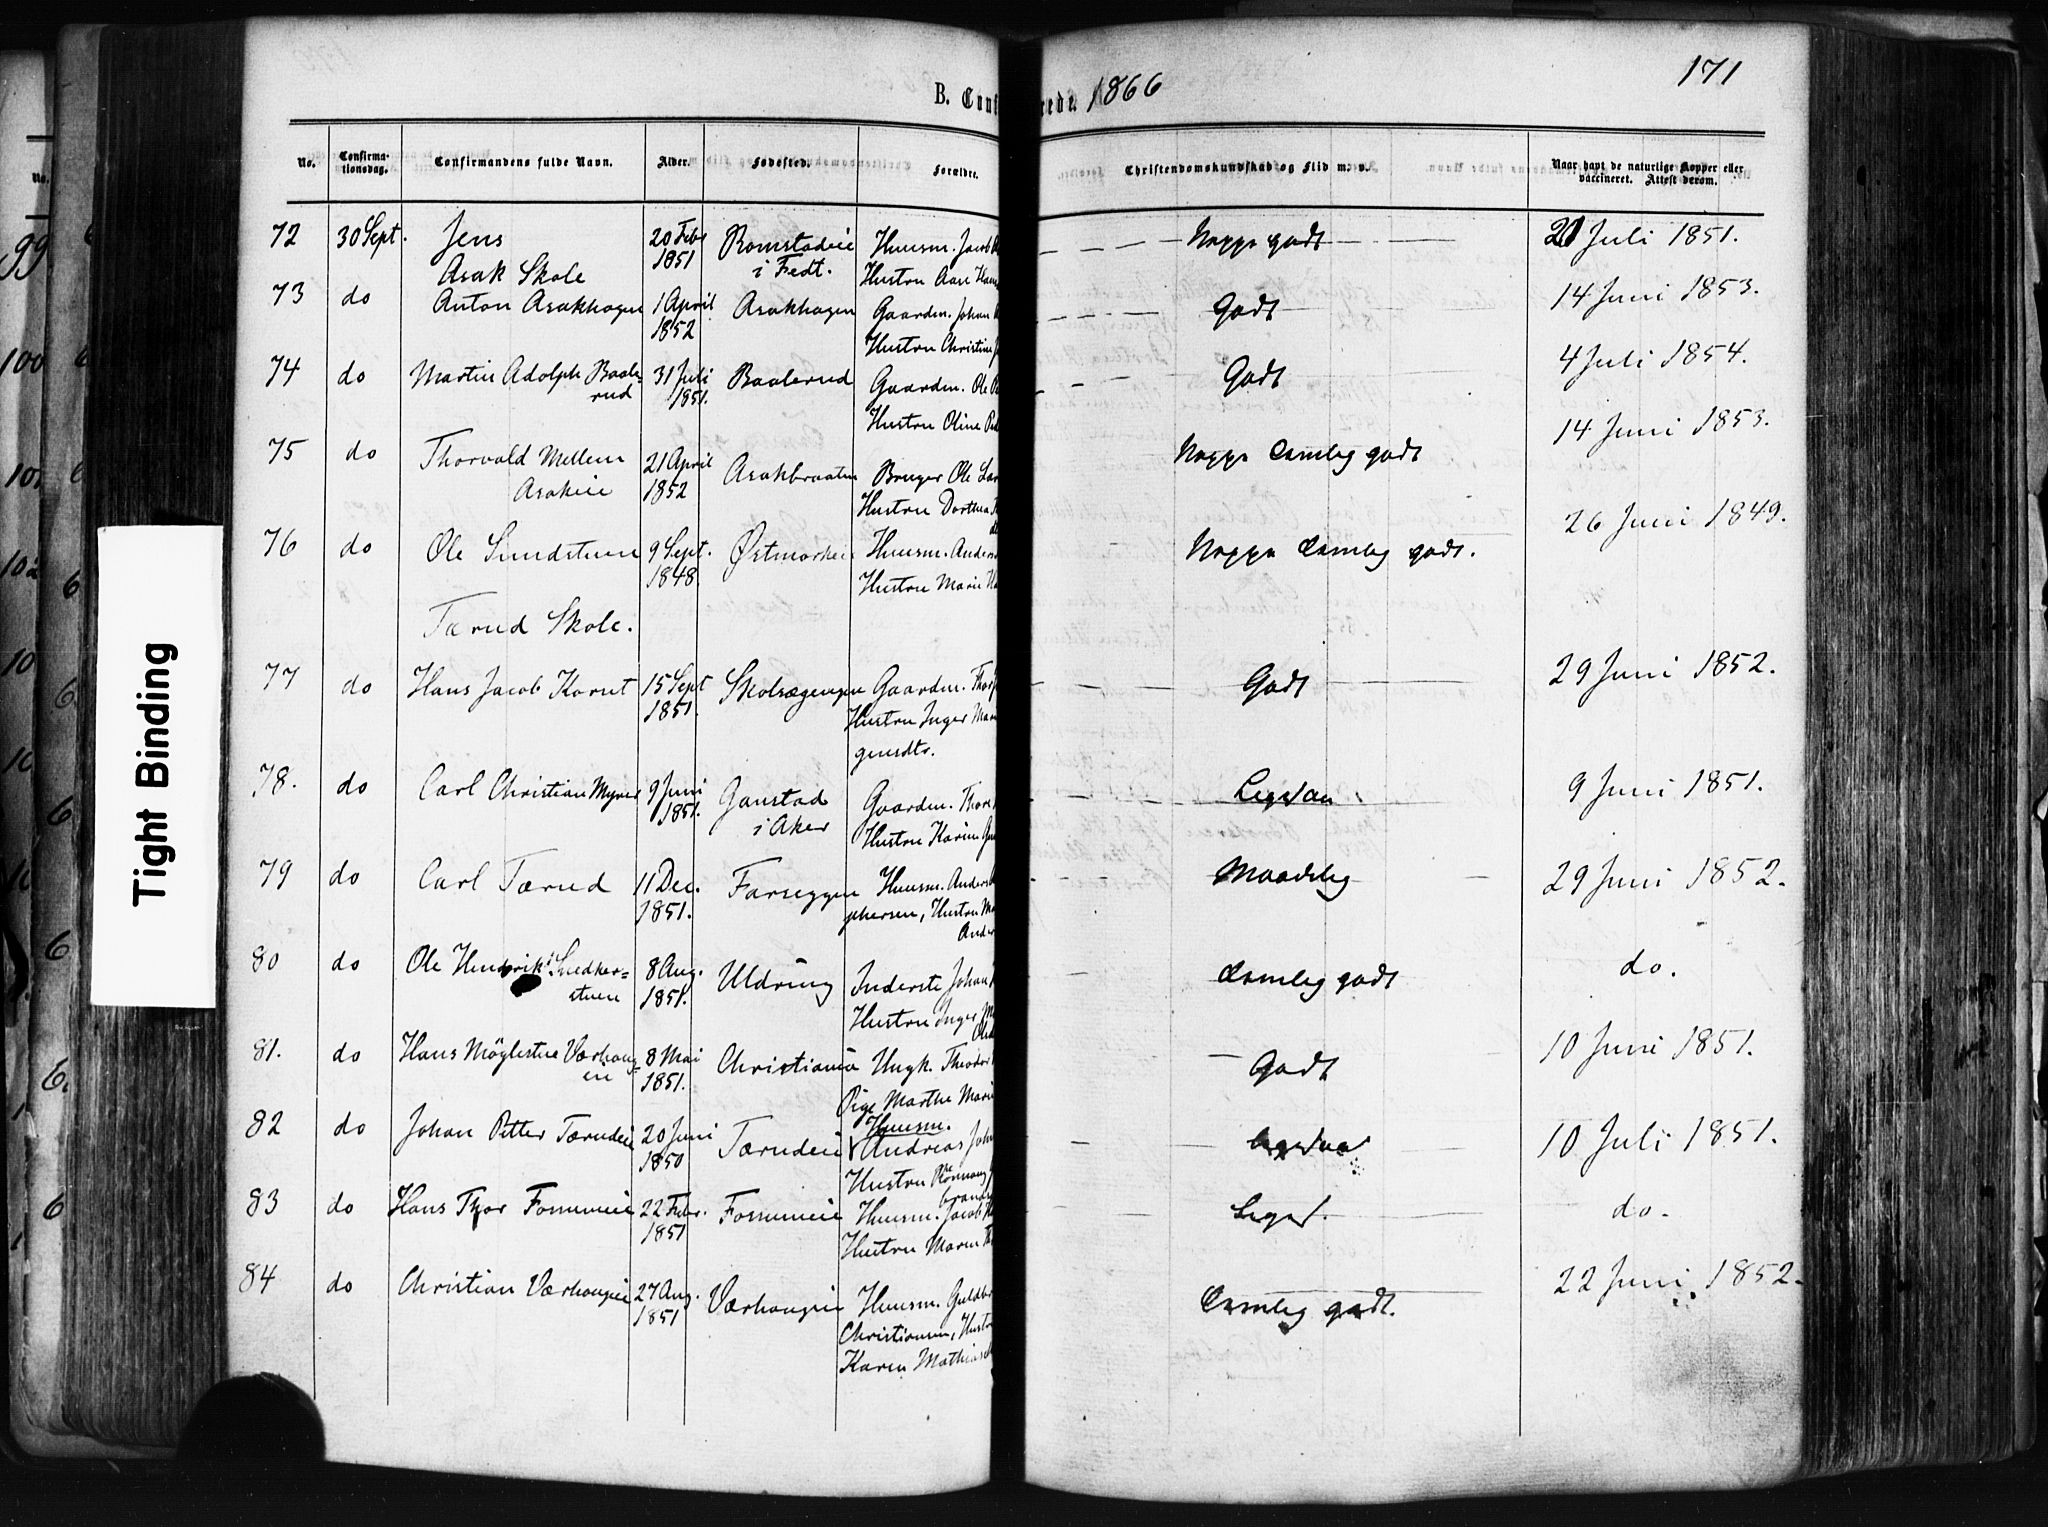 171
B. Conf
rede. 1866
No. Confirma-tionsdag. Confirmandens fulde Navn. Alder. Fødested. Forældre. Christendomskundskab og Flid m. v. Naar havt de naturlige Kopper eller vaccineret. Attest derom.
72 30 Sept. Jens 20 Feb 1851 Romstadeie i Fedt. Huusm. Jacob
Hustru Aase Han Neppe godt 20 Juli 1851.
Asak Skole
73 do Anton Asakhagen 1 April 1852 Asakhagen Gaardm. Johan
Hustru Christine Godt 14 Juni 1853.
74 do Martin Adolph Baale-
rud 31 Juli 1851. Baalerud Gaardm. Ole
Hustru Oline Godt 4 Juli 1854.
75 do Thorvald Mellem
Asakeie 21 April 1852 Asakbraaten Bruger Ole Lar
Hustru Dorthea Neppe temlig godt 14 Juni 1853.
76 do Ole Sundstuen 9 Sept. 1848. Østmorkeie Huusm. Anders
Hustru Marie Neppe temlig godt. 26 Juni 1849.
Tærud Skole.
77 do Hans Jacob Korset 15 Sept 1851. Skolsægengen Gaardm. Thor
Hustru Inger Mar
gensdtr. Godt 29 Juni 1852.
78. do Carl Christian Myrer 9 Juni 1851. Ganstad
i Aker Gaardm. Thor
Hustru Karine 9 Juni 1851.
79 do Carl Tærud 11 Dec. 1851. Farseggen Huusm. Anders
phersen, Hustru Ma
Ander Maadelig 29 Juni 1852.
80 do Ole Hendrik Snedker-
stuen 8 Aug. 1851. Uldring Inderste Johan
Hustru Inger temlig godt do.
81. do Hans Møglestue Værhaug-
en 8 Mai 1851. Christiania Ungk. Theodor
Pige Marthe Marie Godt 10 Juni 1851.
82 do Johan Petter Tærudeie 20 Juni 1850 Tærudeie Huusm.
Andreas Joh
Hustru Rønnaug 10 Juli 1851.
83 do Hans Thor Fonneneie 22 Febr. 1851 Fonneneie Huusm. Jacob
Hustru Maren do.
84 do Christian Værhaugeie 27 Aug. 1851 Værhaugeie Huusm. Guldbr
Christiansen, Hustr
Karen Mathias temlig godt. 22 Juni 1852.
Tight Binding